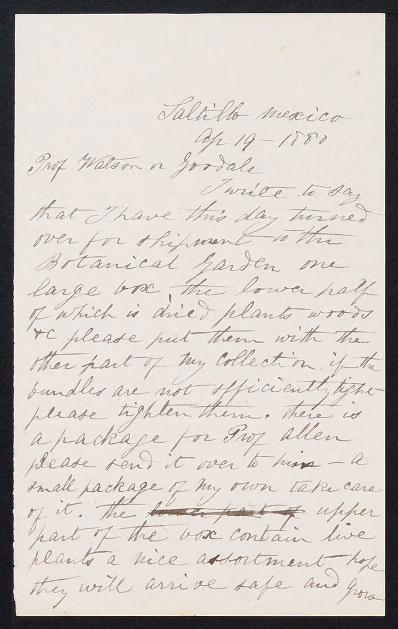 Saltillo Mexico
Ap 19 - 1880
Prof Watson or Goodale
I write to say
that I have this day turned
over for shipment to the
Botanical Garden one
large box, the lower half
of which is dried plants woods
&c please put them with the
other part of my collection. if the
bundles are not sfficiently tight
please tighten them. there is
a package for Prof allen
please send it over to him - a
small package of my own take care
of it. the lower part of upper
part of the box contain live
plants a nice assortment hope
they will arrive safe and grow